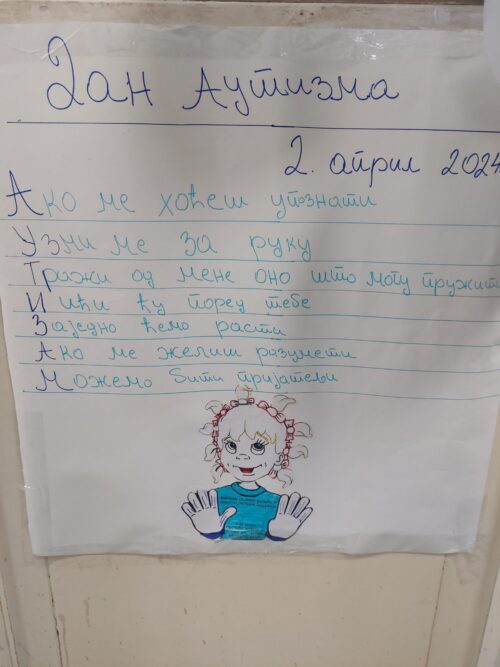 Дан Аутизма
2. април 2024.
Ако ме хоћеш упознати
Узми ме за руку
Тражи од мене оно што могу пружити
И ићи ћу поред тебе
Заједно ћемо расти
Ако ме желиш разумети
Можемо бити пријатељи